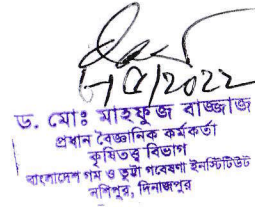 /2022
ড. মোঃ মাহফুজ বাজ্জাজ
প্রধান বৈজ্ঞানিক কর্মকর্তা
কৃষিতত্ত্ব বিভাগ
বাংলাদেশ গম ও ভুট্টা গবেষণা ইনস্টিটিউট
নশিপুর, দিনাজপুর